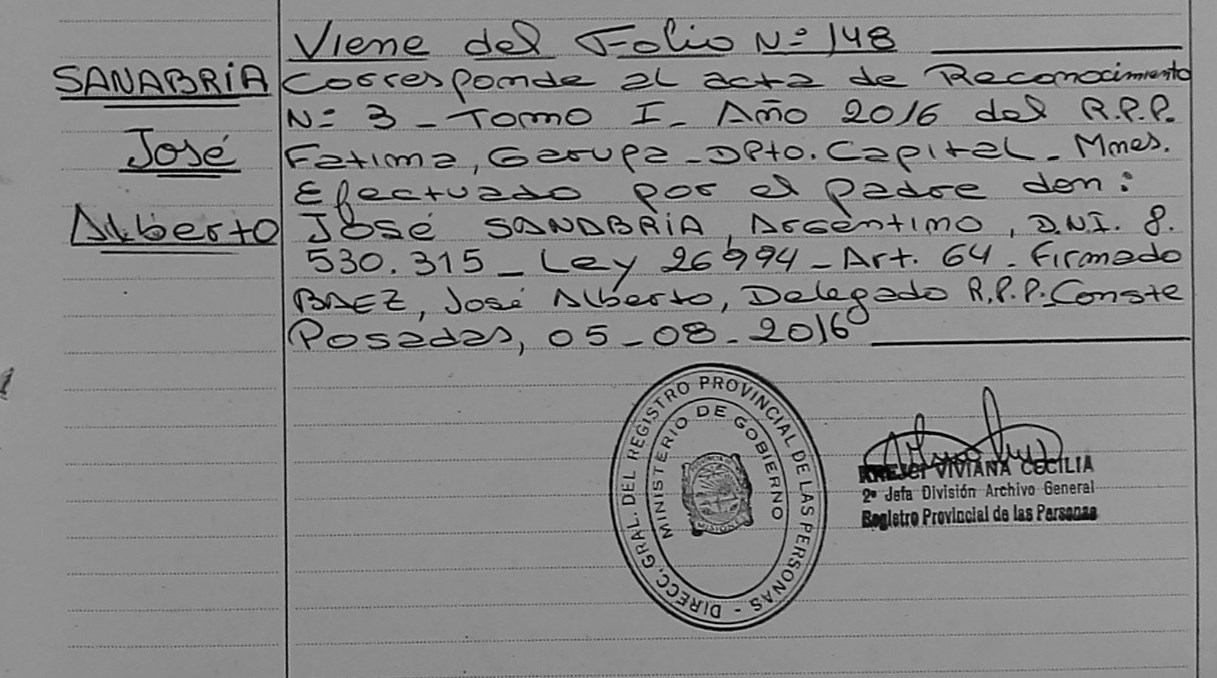 Viene del Folio Nº 148
SANABRIA
José
Alberto
Corresponde al acta de Reconocimiento
Nº 3 - Tomo I - Año 2016 del R.P.P.
Fatima, Garupa - Dpto. Capital - Mnes.
Efectuado por el padre don:
José SANABRIA, Argentino, D.N.I. 8.
530.315 - Ley 26994 - Art. 64 - Firmado
BAEZ, José Alberto, Delegado R.P.P. Conste
Posadas, 05-08-2016
DIRECC. GRAL. DEL REGISTRO PROVINCIAL DE LAS PERSONAS -
MINISTERIO DE GOBIERNO
MISIONES
KREJCI VIVIANA CECILIA
2º Jefa División Archivo General
Registro Provincial de las Personas